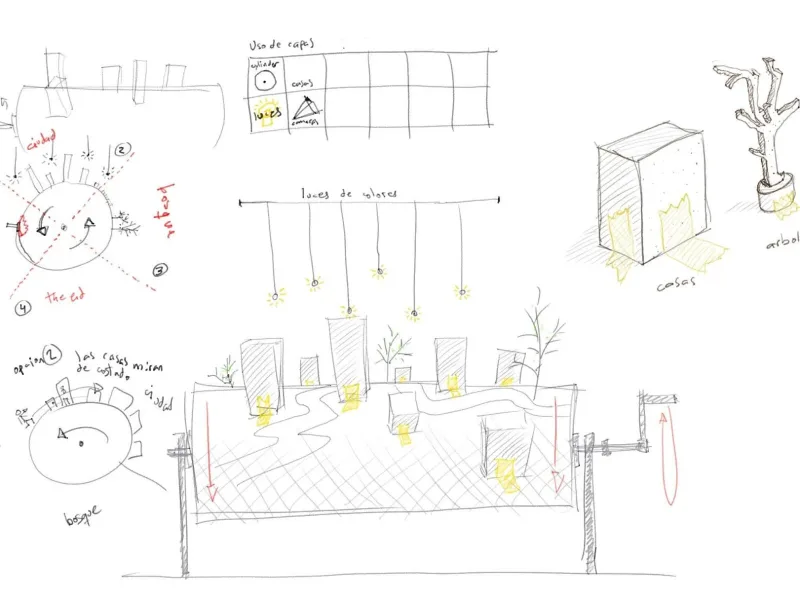 Uso de capas
cylinder
casas
luces
camara
ciudad
2
bosque
3
4
the end
luces de colores
casas
arbol
opcion 2
las casas miran
de costado
ciudad
bosque